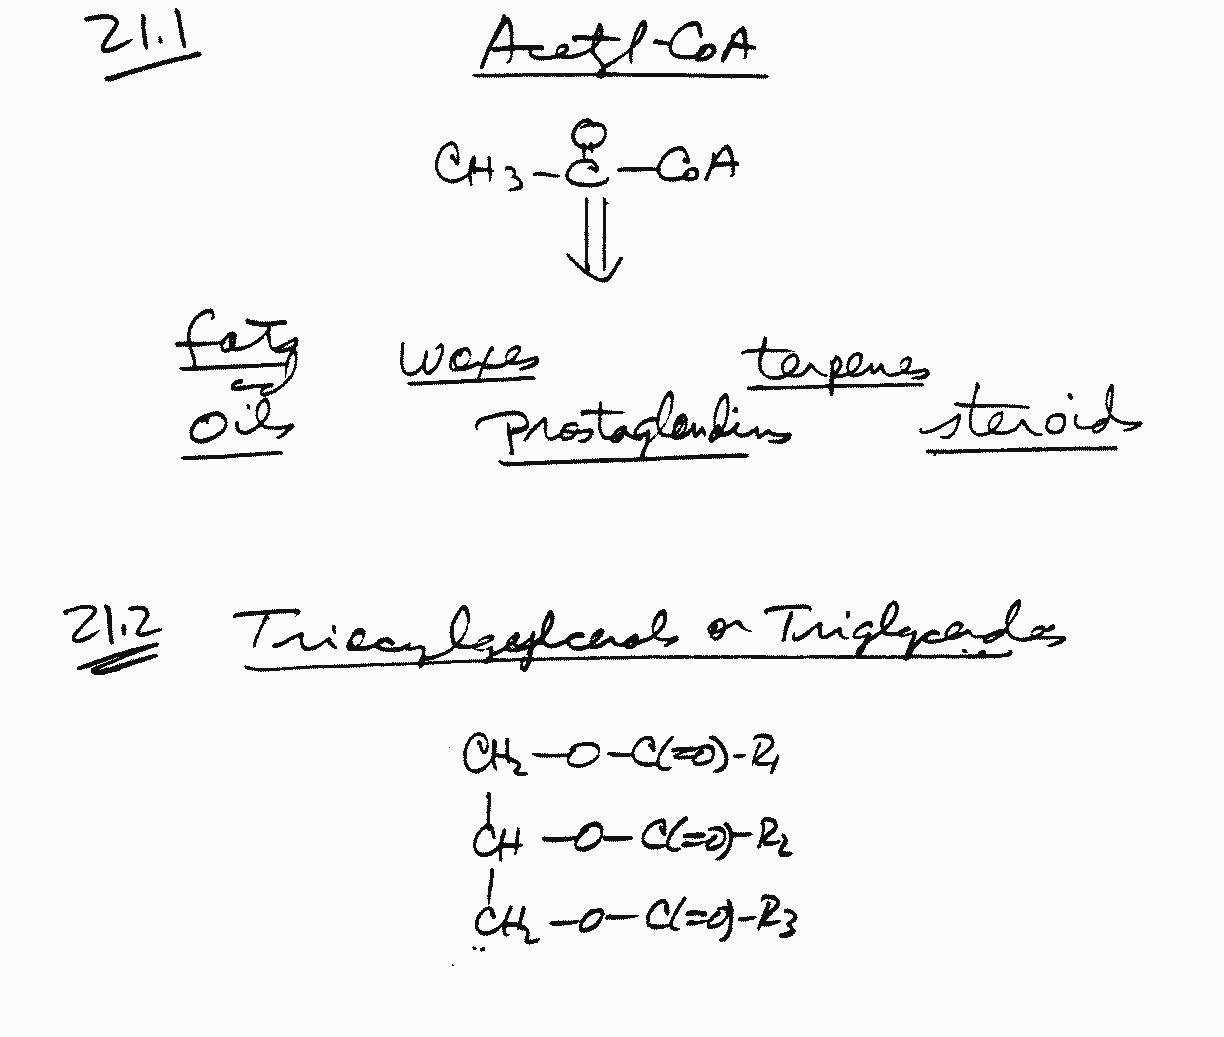 21.1 Acetyl-CoA
O
CH3-C-CoA
fats waxes terpenes
oils Prostaglandins steroids
21.2 Triacylglycerols or Triglycerides
CH2-O-C(=O)-R1
CH-O-C(=O)-R2
CH2-O-C(=O)-R3